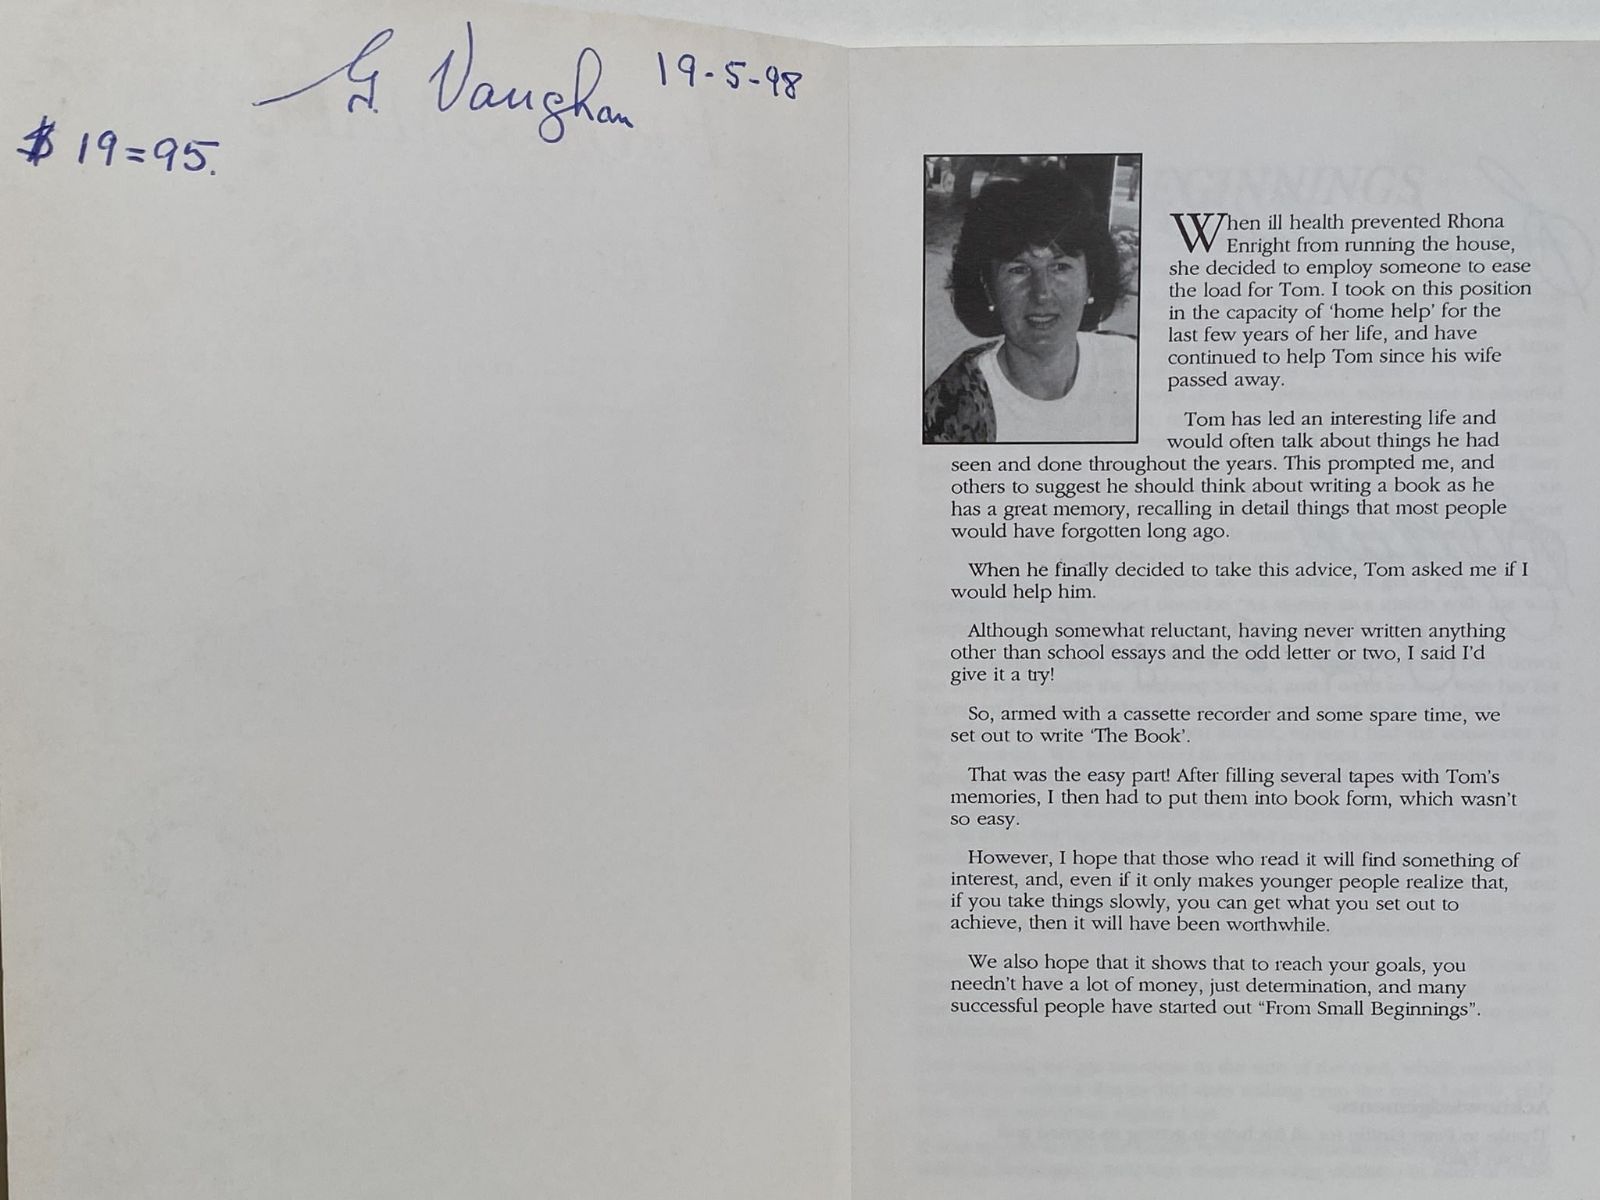 G. Vaughan 19-5-98
$ 19=95.
When ill health prevented Rhona
Enright from running the house,
she decided to employ someone to ease
the load for Tom. I took on this position
in the capacity of ‘home help’ for the
last few years of her life, and have
continued to help Tom since his wife
passed away.
Tom has led an interesting life and
would often talk about things he had
seen and done throughout the years. This prompted me, and
others to suggest he should think about writing a book as he
has a great memory, recalling in detail things that most people
would have forgotten long ago.
When he finally decided to take this advice, Tom asked me if I
would help him.
Although somewhat reluctant, having never written anything
other than school essays and the odd letter or two, I said I’d
give it a try!
So, armed with a cassette recorder and some spare time, we
set out to write ‘The Book’.
That was the easy part! After filling several tapes with Tom’s
memories, I then had to put them into book form, which wasn’t
so easy.
However, I hope that those who read it will find something of
interest, and, even if it only makes younger people realize that,
if you take things slowly, you can get what you set out to
achieve, then it will have been worthwhile.
We also hope that it shows that to reach your goals, you
needn’t have a lot of money, just determination, and many
successful people have started out “From Small Beginnings”.